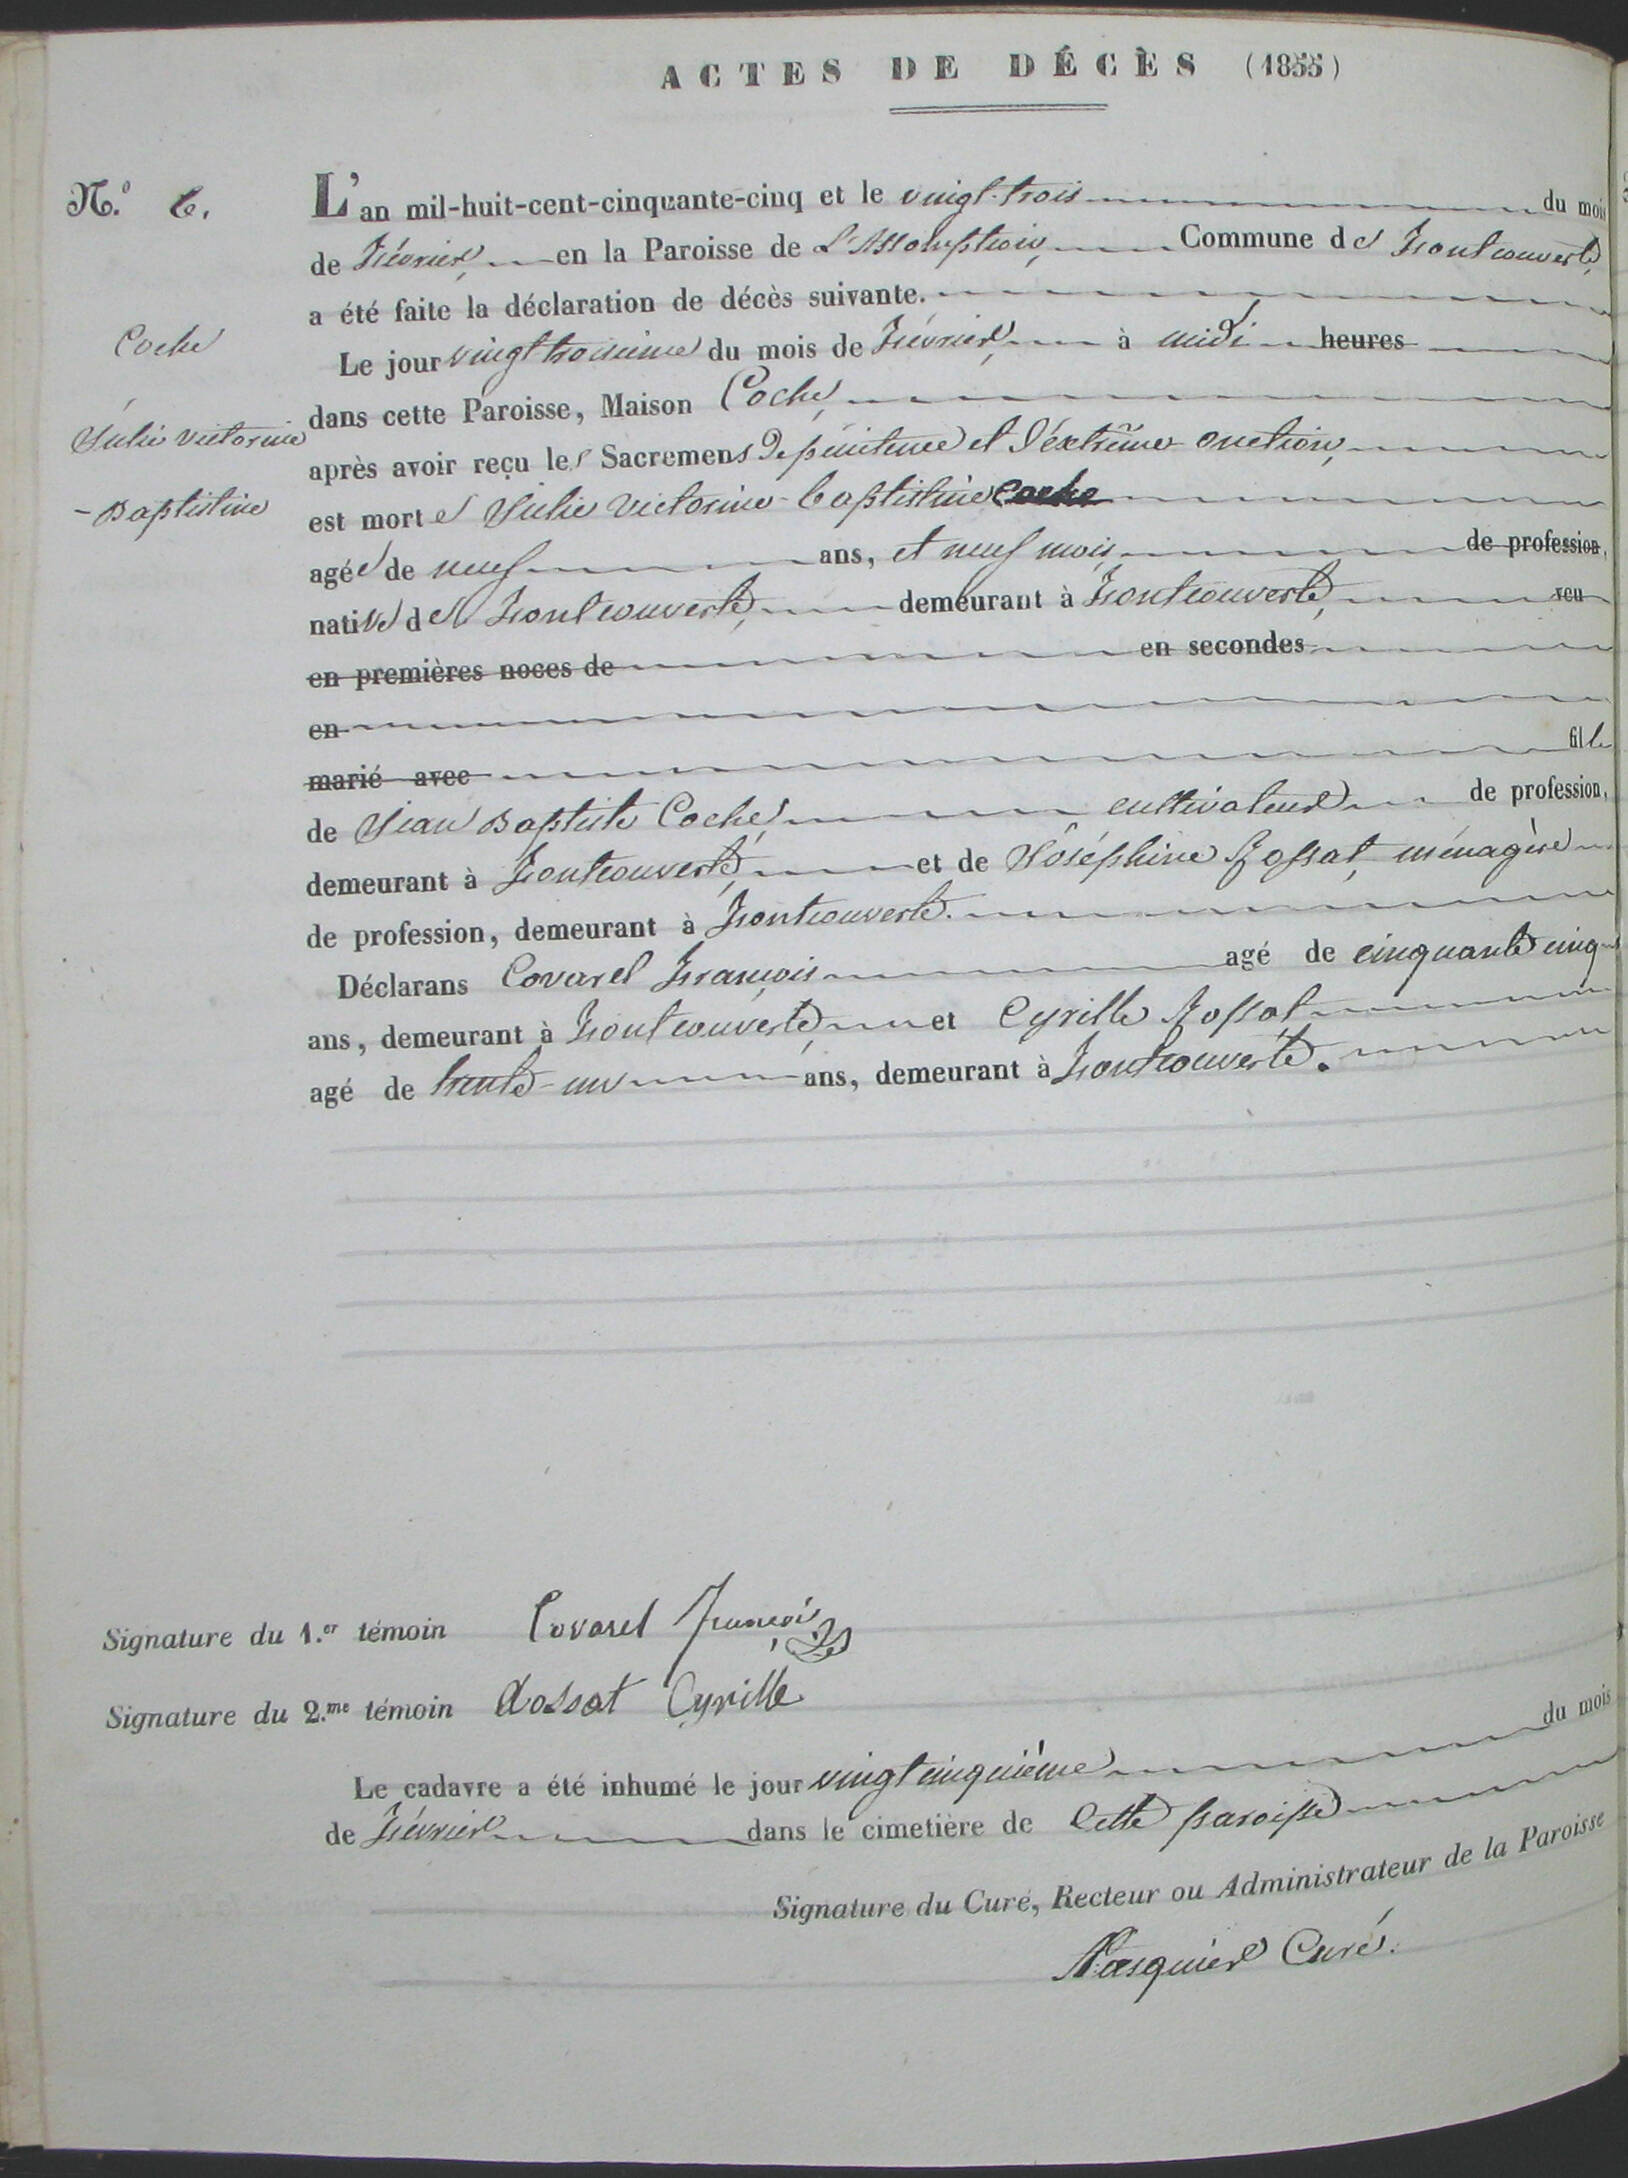 ACTES DE DÉCÈS (1855)
N.º 6.
L'an mil-huit-cent-cinquante-cinq et le vingt-trois du mois
de Février, en la Paroisse de L'Assomption, Commune de Fontcouverte,
a été faite la déclaration de décès suivante.
Coche
Le jour vingt troisième du mois de Février, à midi heures
dans cette Paroisse, Maison Coche,
Julie Victorine
après avoir reçu les Sacremens De pénitence et D'extrême-onction,
- Baptistine
est morte Julie Victorine-baptistine Coche
agée de neuf ans, et neuf mois, de profession,
native de Fontcouverte, demeurant à Fontcouverte, veu
en premières noces de en secondes
en
marié avec fille
de Jean Baptiste Coche, cultivateur de profession,
demeurant à Fontcouverte, et de Joséphine Rossat, ménagère
de profession, demeurant à Fontcouverte.
Déclarans Covarel François agé de cinquante cinq
ans, demeurant à Fontcouverte, et Cyrille Rossat
agé de trente-un ans, demeurant à Fontcouverte.
Signature du 1.er témoin Covarel François
Signature du 2.me témoin Rossat Cyrille
Le cadavre a été inhumé le jour vingt cinquième du mois
de Février dans le cimetière de Cette paroisse
Signature du Curé, Recteur ou Administrateur de la Paroisse
Pasquier Curé.